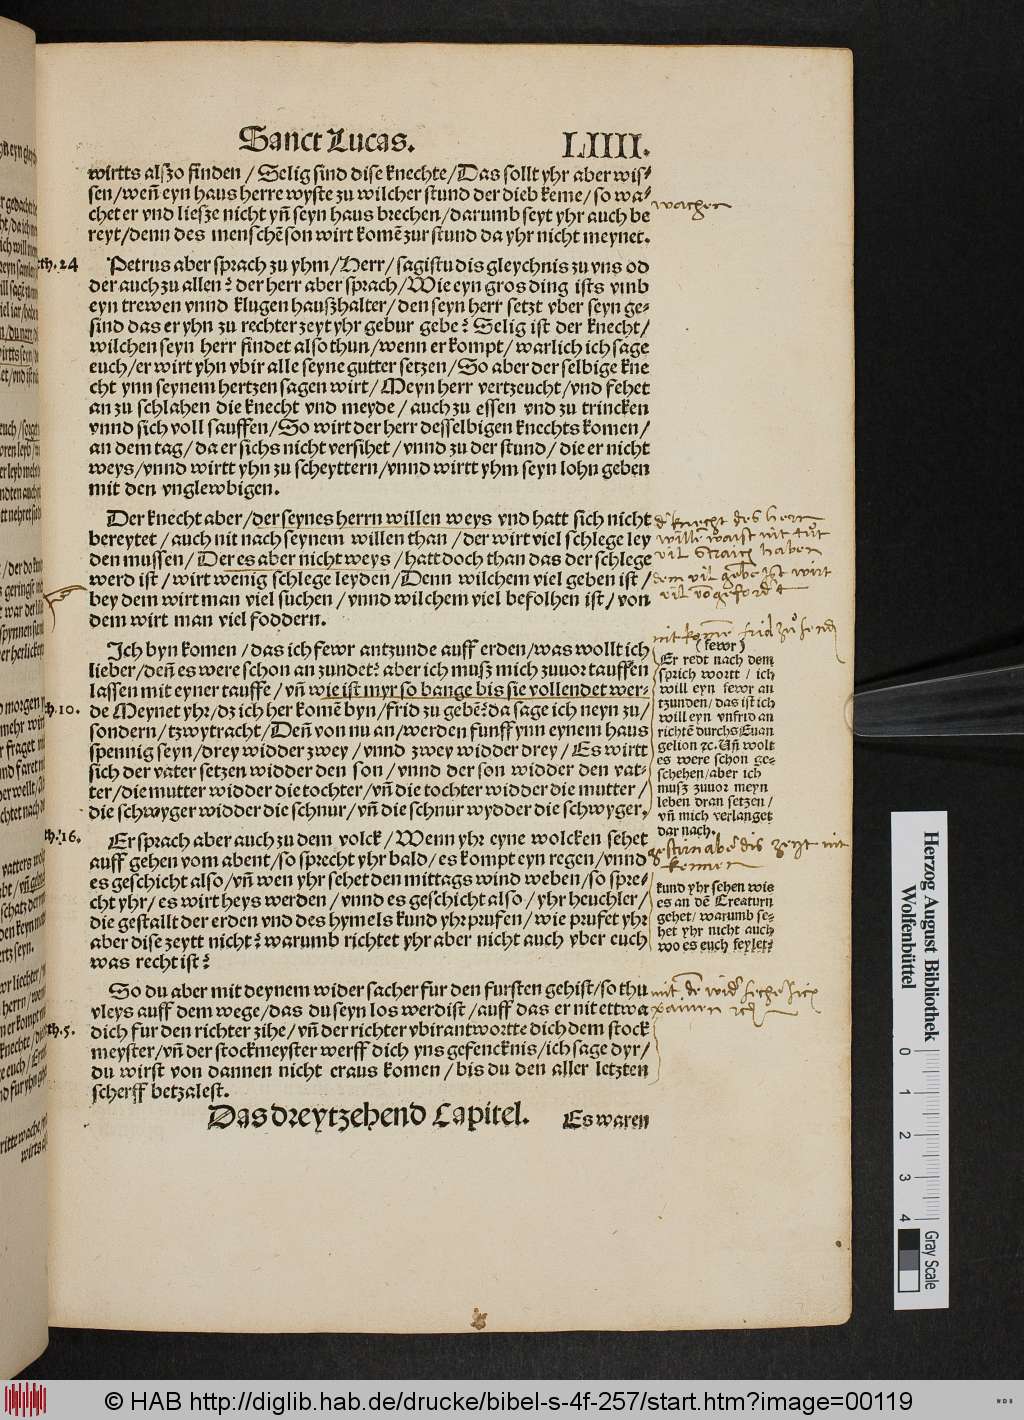 Sanct Lucas. LIIII.
wirtts alßo finden / Selig sind dise knechte / Das sollt yhr aber wis-
sen / weñ eyn haus herre wyste zu wilcher stund der dieb keme / so wa-
chet er vnd liesze nicht yñ seyn haus brechen / darumb seyt yhr auch be
reyt / denn des menschē son wirt komē zur stund da yhr nicht meynet.
wachen
th. 24
Petrus aber sprach zu yhm / Herr / sagistu dis gleychnis zu vns od
der auch zu allen? der herr aber sprach / Wie eyn gros ding ists vmb
eyn trewen vnnd klugen haußhalter / den seyn herr setzt vber seyn ge-
sind das er yhn zu rechter zeyt yhr gebur gebe? Selig ist der knecht /
wilchen seyn herr findet also thun / wenn er kompt / warlich ich sage
euch / er wirt yhn vbir alle seyne gutter setzen / So aber der selbige kne
cht ynn seynem hertzen sagen wirt / Meyn herr vertzeucht / vnd fehet
an zu schlahen die knecht vnd meyde / auch zu essen vnd zu trincken
vnnd sich voll sauffen / So wirt der herr desselbigen knechts komen /
an dem tag / da er sichs nicht versihet / vnnd zu der stund / die er nicht
weys / vnnd wirtt yhn zu scheyttern / vnnd wirtt yhm seyn lohn geben
mit den vnglewbigen.
Der knecht aber / der seynes herrn willen weys vnd hatt sich nicht
bereytet / auch nit nach seynem willen than / der wirt viel schlege ley
den mussen / Der es aber nicht weys / hatt doch than das der schlege
werd ist / wirt wenig schlege leyden / Denn wilchem viel geben ist /
bey dem wirt man viel suchen / vnnd wilchem viel befolhen ist / von
dem wirt man viel foddern.
knecht des herrn
vil straich haben
Ich byn komen / das ich fewr antzunde auff erden / was wollt ich
lieber / deñ es were schon an zundet? aber ich muß mich zuuor tauffen
lassen mit eyner tauffe / vñ wie ist myr so bange bis sie vollendet wer-
th. 10.
de Meynet yhr / dz ich her komē byn / frid zu gebē? da sage ich neyn zu /
sondern / tzwytracht / Deñ von nu an / werden funff ynn eynem haus
spennig seyn / drey widder zwey / vnnd zwey widder drey / Es wirtt
sich der vater setzen widder den son / vnnd der son widder den vat-
ter / die mutter widder die tochter / vñ die tochter widder die mutter /
die schwyger widder die schnur / vñ die schnur wydder die schwyger.
(fewr)
Er redt nach dem
sprich wortt / ich
will eyn fewr an
tzunden / das ist ich
will eyn vnfrid an
richtē durchs Euan
gelion ꝛc. Vñ wolt
es were schon ge-
schehen / aber ich
musz zuuor meyn
leben dran setzen /
vñ mich verlanget
dar nach.
th. 16.
Er sprach aber auch zu dem volck / Wenn yhr eyne wolcken sehet
auff gehen vom abent / so sprecht yhr bald / es kompt eyn regen / vnnd
es geschicht also / vñ wen yhr sehet den mittags wind weben / so spre-
cht yhr / es wirt heys werden / vnnd es geschicht also / yhr heuchler /
die gestallt der erden vnd des hymels kund yhr prufen / wie prufet yhr
aber dise zeytt nicht? warumb richtet yhr aber nicht auch vber euch
was recht ist?
kund yhr sehen wie
es an dē Creaturn
gehet / warumb se-
het yhr nicht auch
wo es euch feylet?
So du aber mit deynem wider sacher fur den fursten gehist / so thu
vleys auff dem wege / das du seyn los werdist / auff das er nit ettwa
th. 5.
dich fur den richter zihe / vñ der richter vbirantwortte dich dem stock
meyster / vñ der stockmeyster werff dich yns gefencknis / ich sage dyr /
du wirst von dannen nicht eraus komen / bis du den aller letzten
scherff betzalest.
Das dreytzehend Capitel. Es waren
Herzog August Bibliothek
Wolfenbüttel
0 1 2 3 4
Gray Scale
© HAB http://diglib.hab.de/drucke/bibel-s-4f-257/start.htm?image=00119